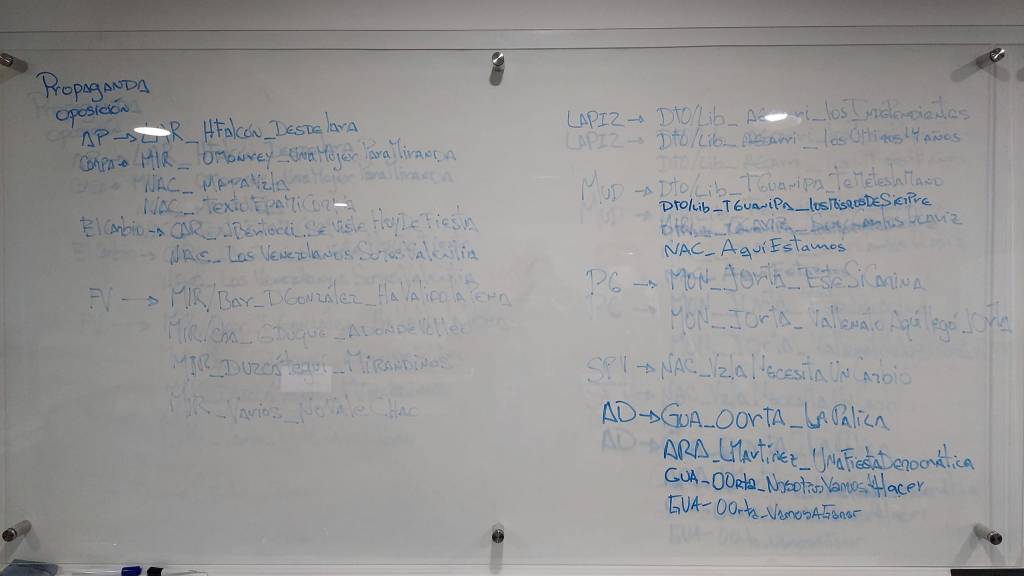 Propaganda
oposición
AP → LAR_HFalcón_DesdeLara
COPA → MIR_OMonrey_UnaMujerParaMiranda
NAC_MapaVzla
NAC_TextoEpa
El Cambio → CAR_VBertucci_SeVisteHoyDeFiesta
NAC_LosVenezolanosSomosValentía
FV → MIR/Bar_DGonzález_HaValidoLaPena
MIR/Cha_GDuque_ADonde
MIR_DUzcátegui_Mirandinos
MIR_Varios_NoValeChao
LAPIZ → Dtto/Lib_AEcarri_LosIndependientes
LAPIZ → Dtto/Lib_AEcarri_LosÚltimos14años
MUD → Dtto/Lib_TGuanipa_TeMetesLaMano
Dtto/Lib_TGuanipa_LosMismosDeSiempre
NAC_AquíEstamos
PG → MON_JOrta_EsteSiCamina
MON_JOrta_VallenatoAquíLlegóJOrta
SPV → NAC_VzlaNecesitaUnCambio
AD → GUA_OOrta_LaPaliza
ARA_LMartínez_UnaFiestaDemocrática
GUA-OOrta_NosotrosVamosAHacer
GUA-OOrta_VamosAGanar